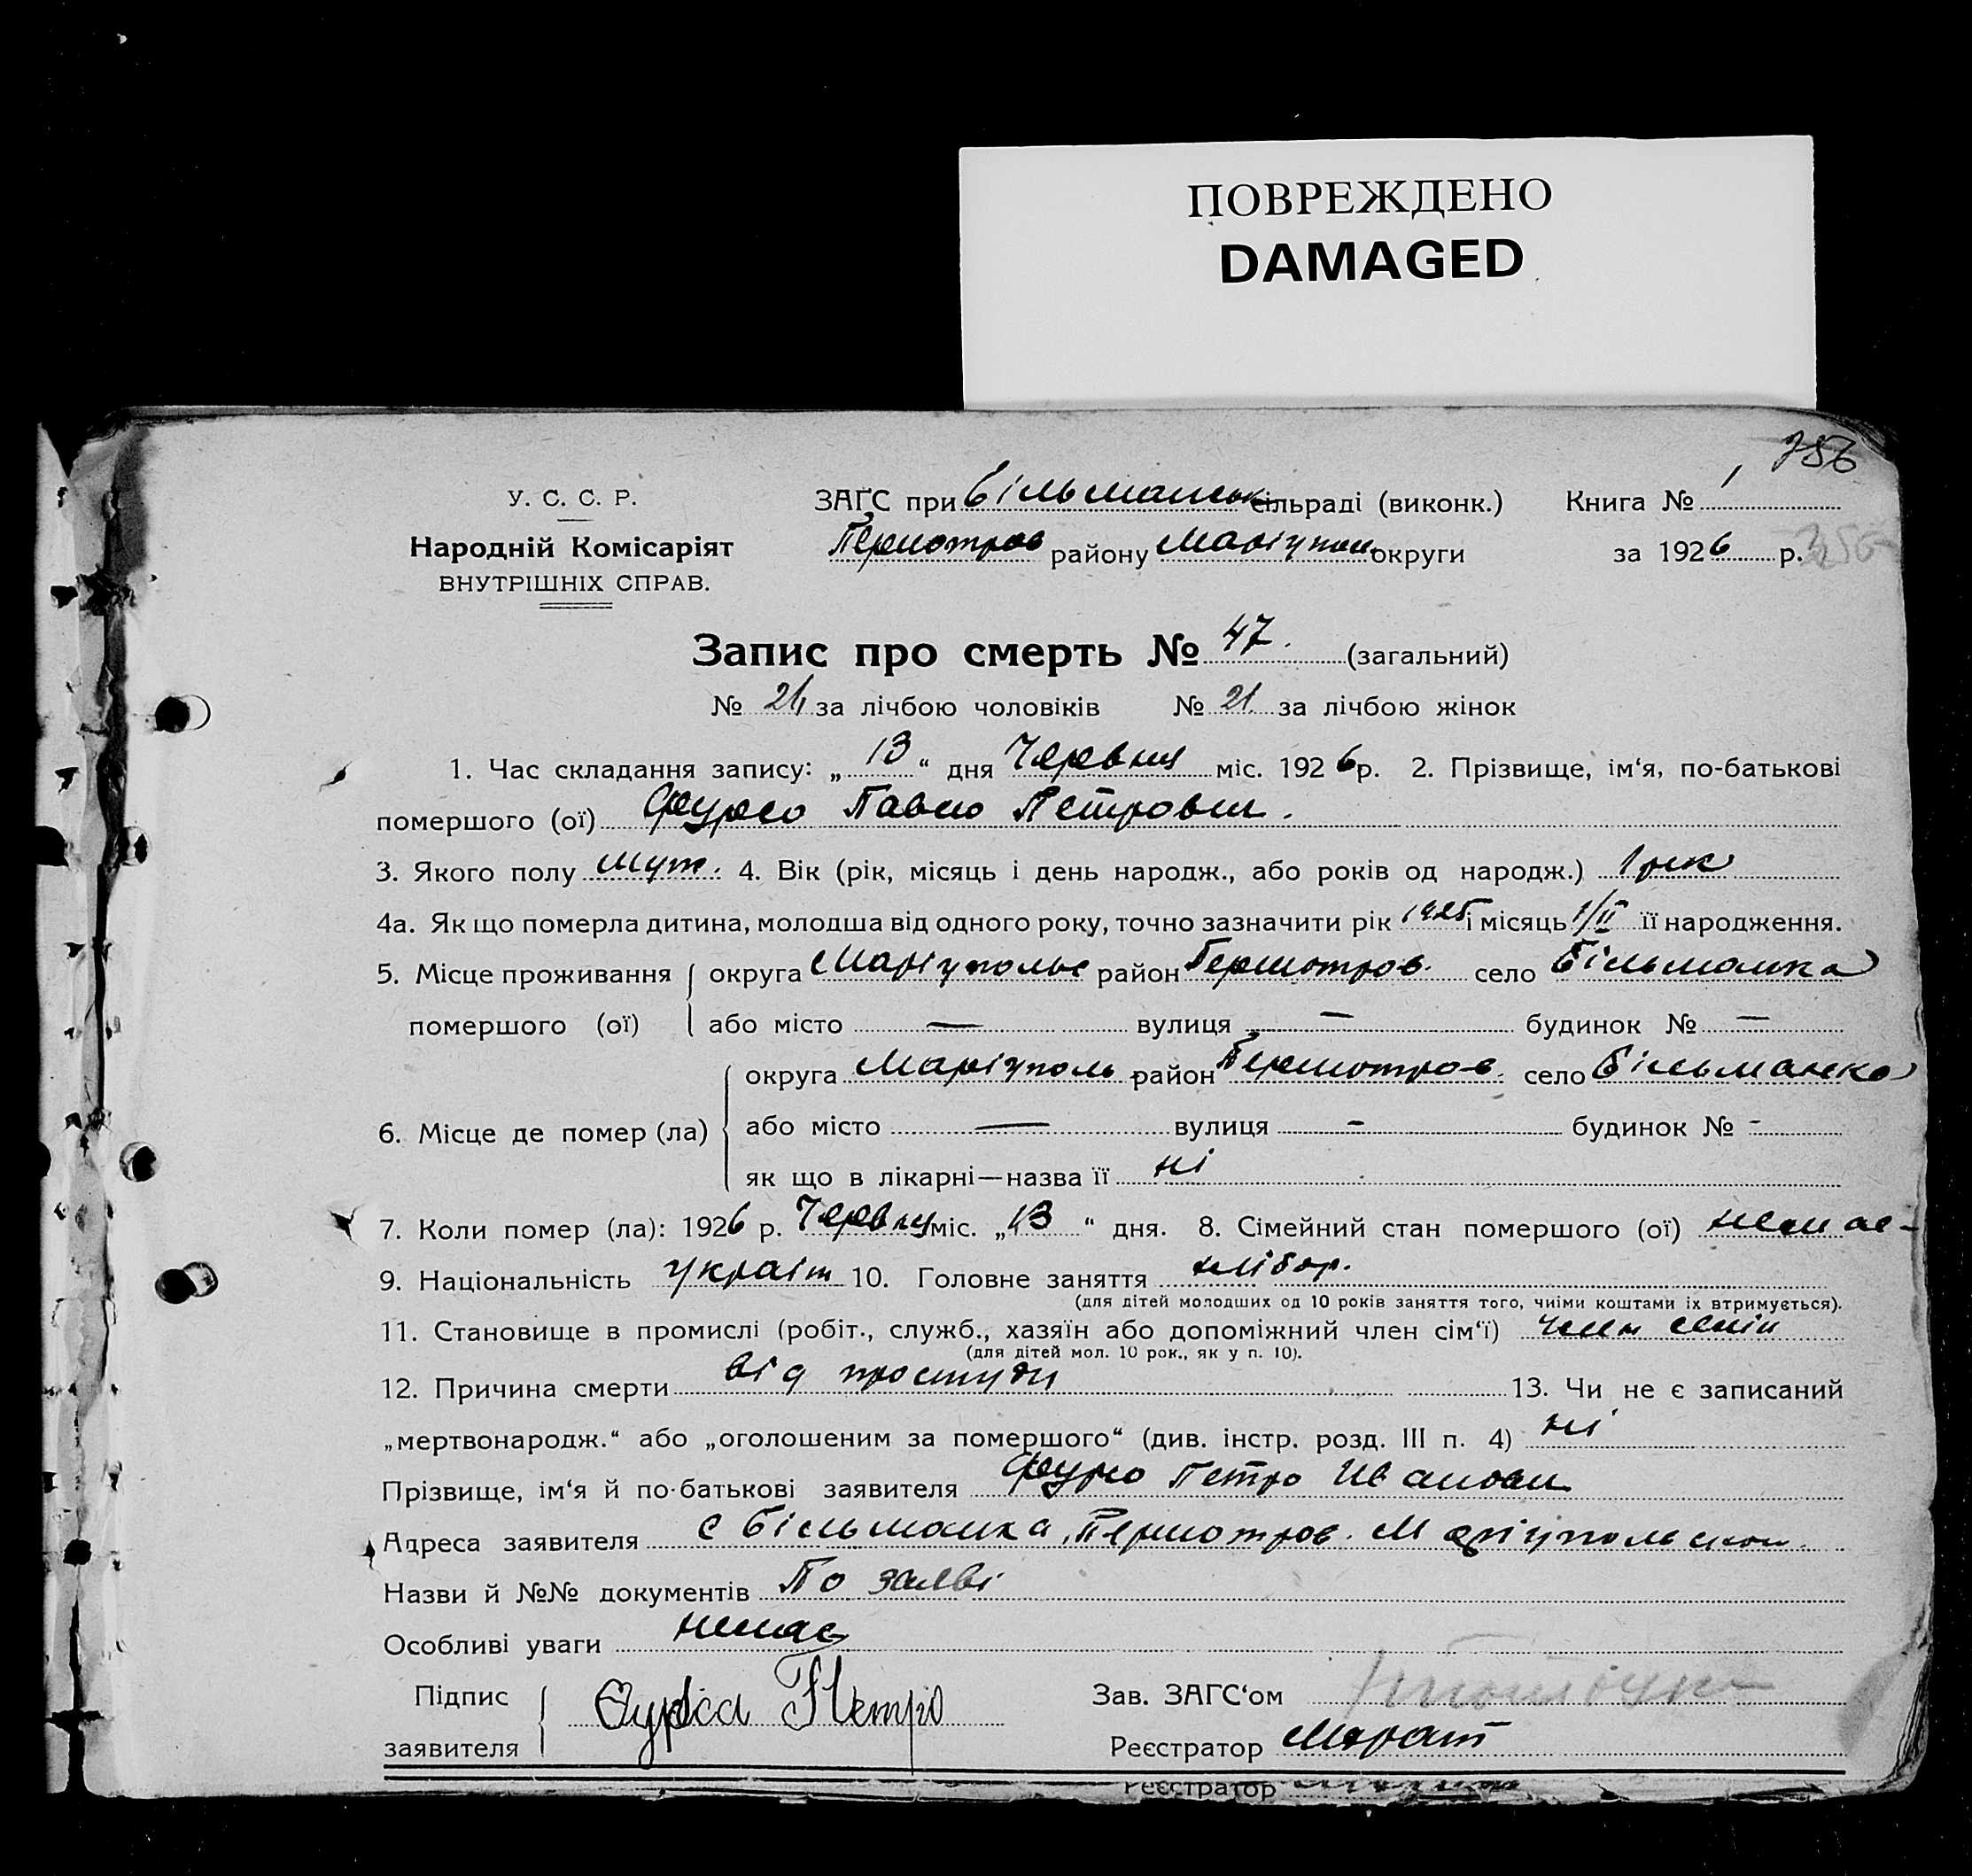 ПОВРЕЖДЕНО
DAMAGED
356
У. С. С. Р. ЗАГС при Більманськ сільраді (виконк.) Книга № 1
Народній Комісаріят Першотров району Маріупол. округи за 1926 р. 356
ВНУТРІШНІХ СПРАВ.
Запис про смерть № 47. (загальний)
№ 26 за лічбою чоловіків № 21. за лічбою жінок
1. Час складання запису: „13“ дня Червня міс. 1926 р. 2. Прізвище, ім‘я, по-батькові
помершого (ої) Фурсо Павло Петрович.
3. Якого полу муж. 4. Вік (рік, місяць і день народж., або років од народж.) 1 рік
4а. Як що померла дитина, молодша від одного року, точно зазначити рік 1925 і місяць 1/II її народження.
5. Місце проживання округа Маріупольс район Першотров. село Більманка
помершого (ої) або місто — вулиця — будинок № —
округа Маріуполь район Першотров. село Більманка
6. Місце де помер (ла) або місто — вулиця - будинок № -
як що в лікарні—назва її ні
7. Коли помер (ла): 1926 р. Червня міс. „13“ дня. 8. Сімейний стан помершого (ої) немає-
9. Національність україн 10. Головне заняття хлібор.
(для дітей молодших од 10 років заняття того, чиїми коштами їх втримується).
11. Становище в промислі (робіт., служб., хазяїн або допоміжний член сім‘ї) член сем‘ї
(для дітей мол. 10 рок., як у п. 10).
12. Причина смерти від простуди 13. Чи не є записаний
„мертвонародж.“ або „оголошеним за помершого“ (див. інстр. розд. III п. 4) ні
Прізвище, ім‘я й по-батькові заявителя Фурсо Петро Иванович
Адреса заявителя с Більманка, Першотров. Маріупольскои
Назви й №№ документів По заяві
Особливі уваги немає
Підпис Фурса Петро Зав. ЗАГС‘ом
заявителя Реєстратор
Реєстратор